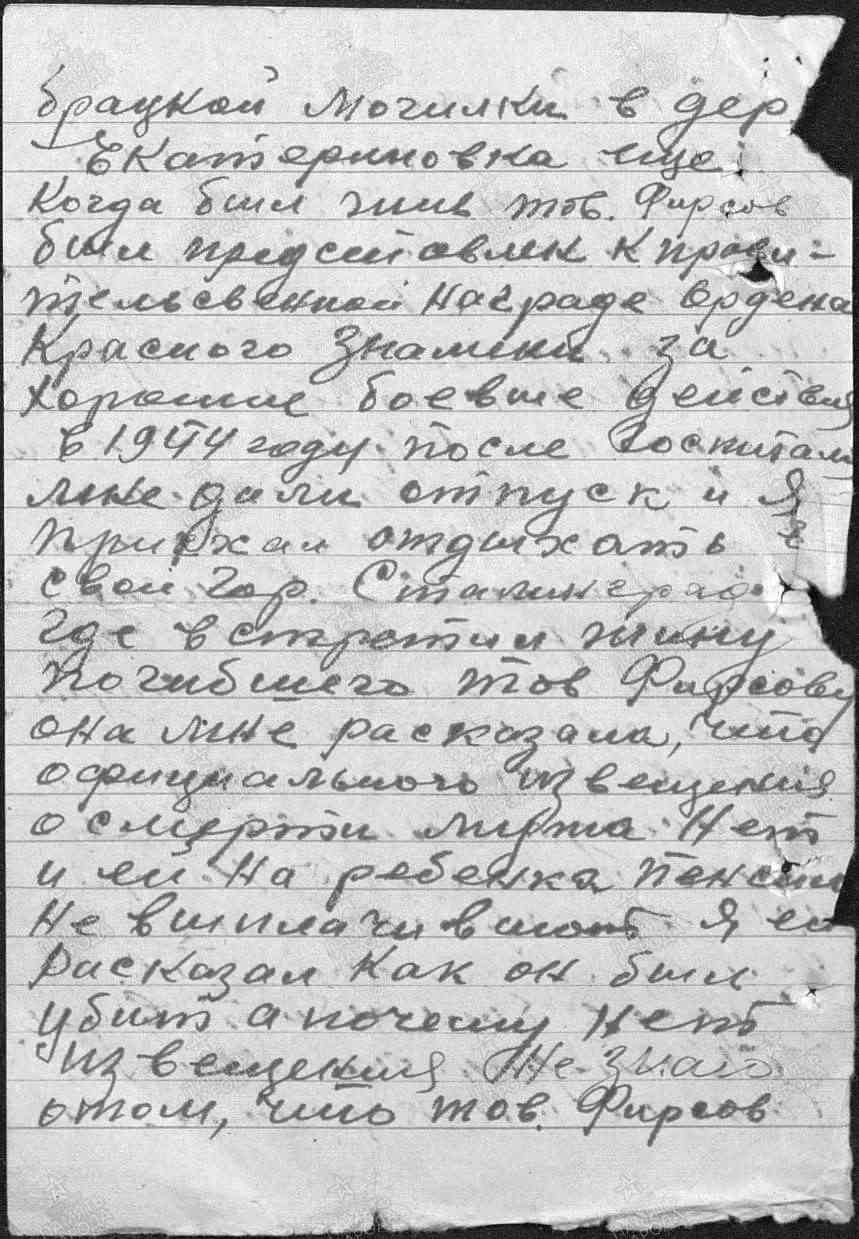 брацкой могилки в дер
Екатериновка еще
когда был жив тов. Фирсов
был представлен к прави-
тельсвенной награде ордена
Красного Знамени за
хорошие боевые действия
в 1944 году после госпиталя
мне дали отпуск и я
приехал отдыхать в
свой гор. Сталинград
где встретил жину
погибшего тов Фирсову
она мне расказала, что
официального извещения
о смерти мужа нет
и ей на ребенка пенсии
не выплачивают я ей
расказал как он был
убит а почему нет
извещения не знаю
отом, что тов. Фирсов